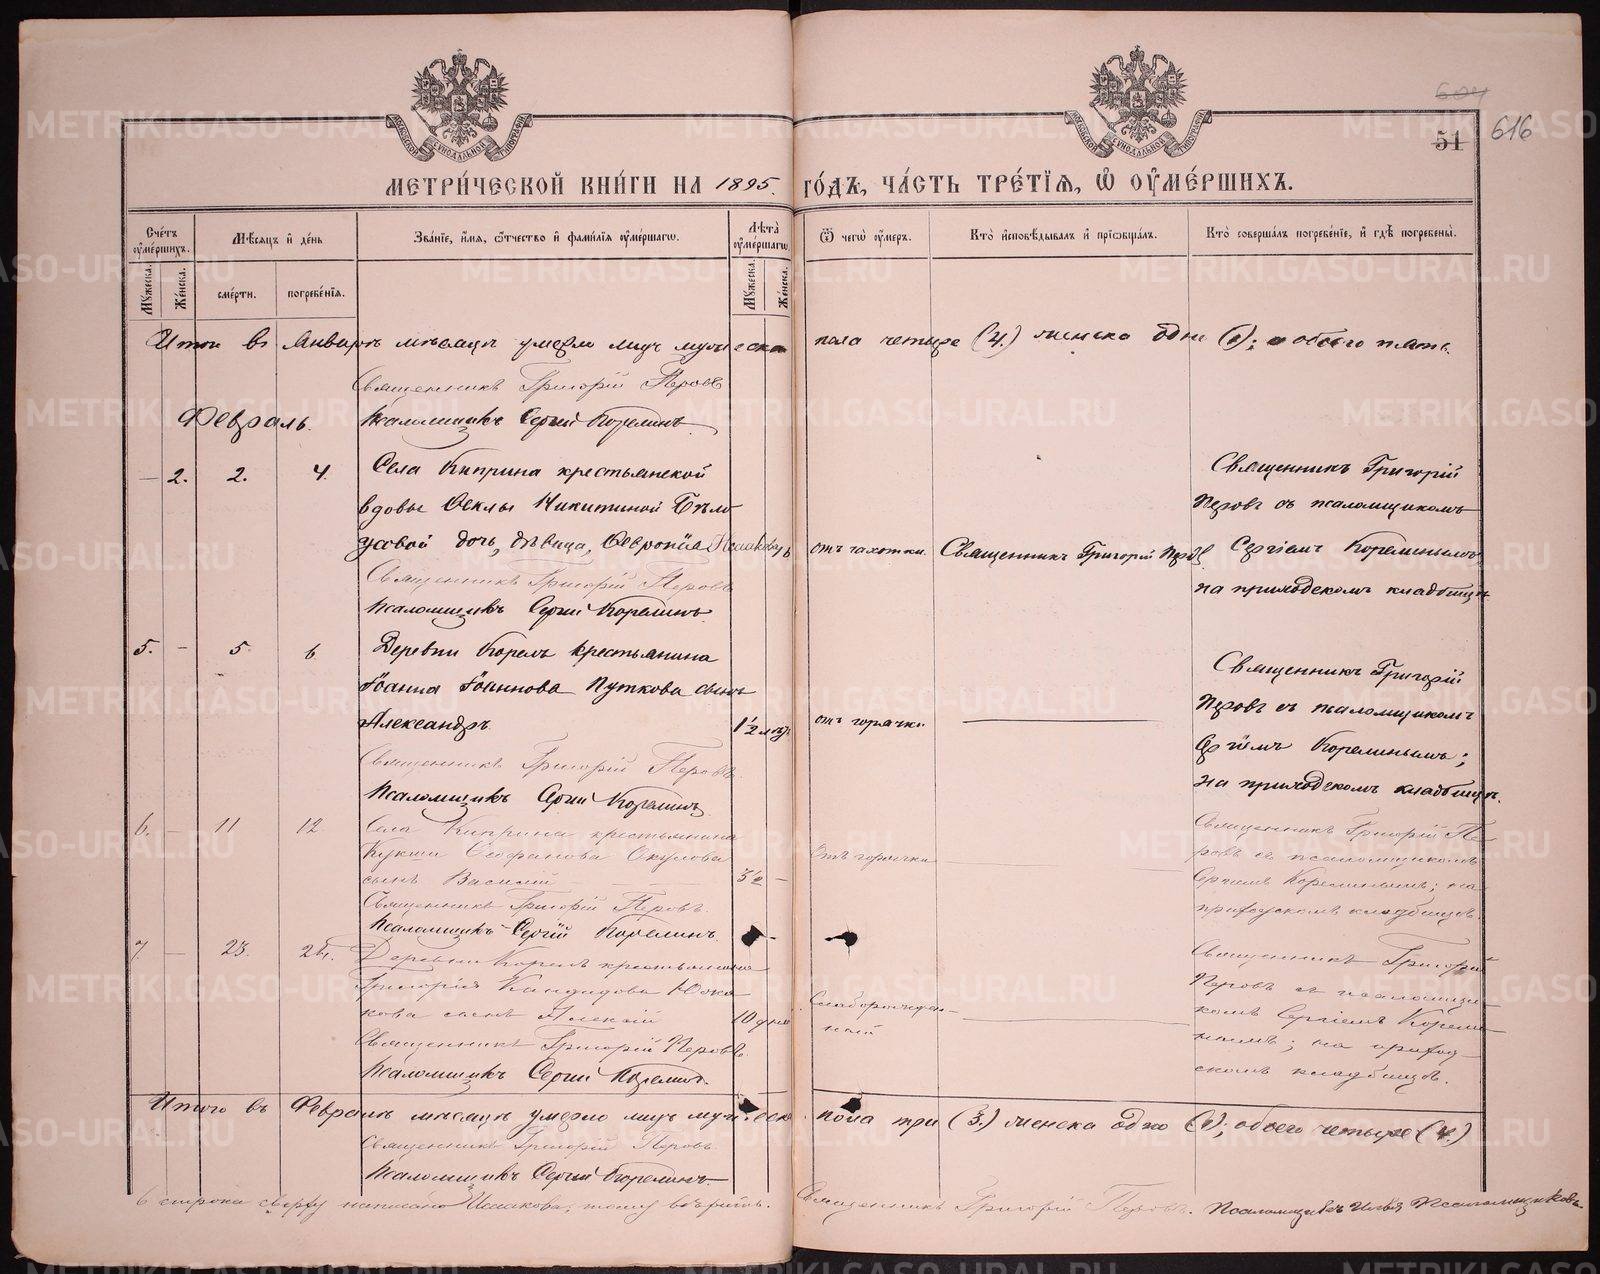 604
51
616
МЕТРИ́ЧЕСКОЙ КНИ́ГИ НА 1895. ГО́ДЪ, ЧА́СТЬ ТРЕ́ТІЯ, Ѡ ОУ҆МЕ́РШИХЪ.
Сче́тъ оу҆ме́ршихъ.
Мѣсяцъ и҆ де́нь
Зва́ніе, и҆́мя, ѻ҆́тчество и҆ фами́лія оу҆ме́ршагѡ.
Лѣта̀ оу҆ме́ршагѡ.
Ѿ чегѡ̀ оу҆́меръ.
Кто̀ и҆сповѣ́дывалъ и҆ прїѡбща́лъ.
Кто̀ соверша́лъ погребе́ніе, и҆ гдѣ̀ погребены̀.
Мꙋ́жеска.
Же́нска.
сме́рти.
погребе́нія.
Мꙋ́жеска.
Же́нска.
Итого въ Январѣ мѣсяцѣ умерло лицъ мужеска пола четыре (4.) женска одно (1); а обоего пять.
Священникъ Григорій Перовъ
Февраль.
Псаломщикъ Сергій Корелинъ
— 2. 2. 4. Села Киприна крестьянской
вдовы Ѳеклы Никитиной Бѣло
усовой дочь, дѣвица, Ѳевронія
отъ чахотки. Священникъ Григорій Перовъ
Священникъ Григорій
Перовъ съ псаломщикомъ
Сергіемъ Корелинымъ
на приходскомъ кладбищѣ
Священникъ Григорій Перовъ
Псаломщикъ Сергій Корелинъ
5. — 5. 6. Деревни Корелъ крестьянина
Іоанна Іоаннова Путкова сынъ
Александръ 1½ лѣт отъ горячки
Священникъ Григорій
Перовъ съ псаломщикомъ
Сергіемъ Корелинымъ;
на приходскомъ кладбищѣ.
Священникъ Григорій Перовъ.
Псаломщикъ Сергій Корелинъ
6. — 11 12. Села Киприна крестьянина
Ѳеофанова Окулова
сынъ Василій — Отъ горячки
Священникъ Григорій Пе-
ровъ съ псаломщикомъ
Сергіемъ Корелинымъ; на
приходскомъ кладбищѣ.
Священникъ Григорій Перовъ.
Псаломщикъ Сергій Корелинъ.
7 — 23. Деревни Корелъ крестьянина
Григорія Кандидова
кова сынъ Алексій 10 дней
Слаборожден-
ный
Священникъ Григорій
Перовъ съ псаломщи-
комъ Сергіемъ Корели-
нымъ; на приход-
скомъ кладбищѣ.
Священникъ Григорій Перовъ.
Псаломщикъ Сергій Корелинъ.
Итого въ Февралѣ мѣсяцѣ умерло лицъ мужеска пола три (3.) женска одно (1); обоего четыре (4.)
Священникъ Григорій Перовъ.
Псаломщикъ Сергій Корелинъ
6 строка сверху написано Исакова, тому вѣрить.
Священникъ Григорій Перовъ. Псаломщикъ Илья Псаломщиковъ.
METRIKI.GASO-URAL.RU